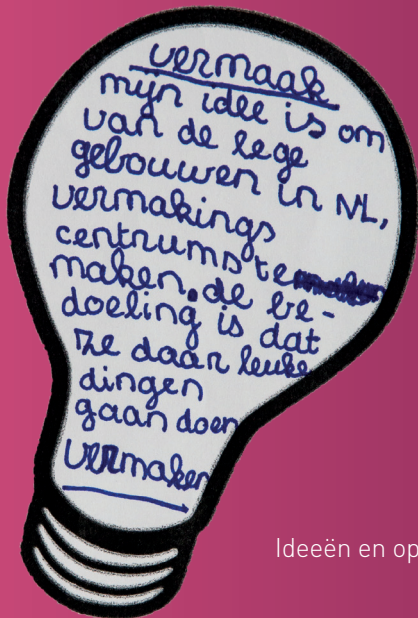 vermaak
mijn idee is om
van de lege
gebouwen in NL,
vermakings
centrums te
maken. de be-
doeling is dat
ze daar leuke
dingen
gaan doen
vermaken
Ideeën en op